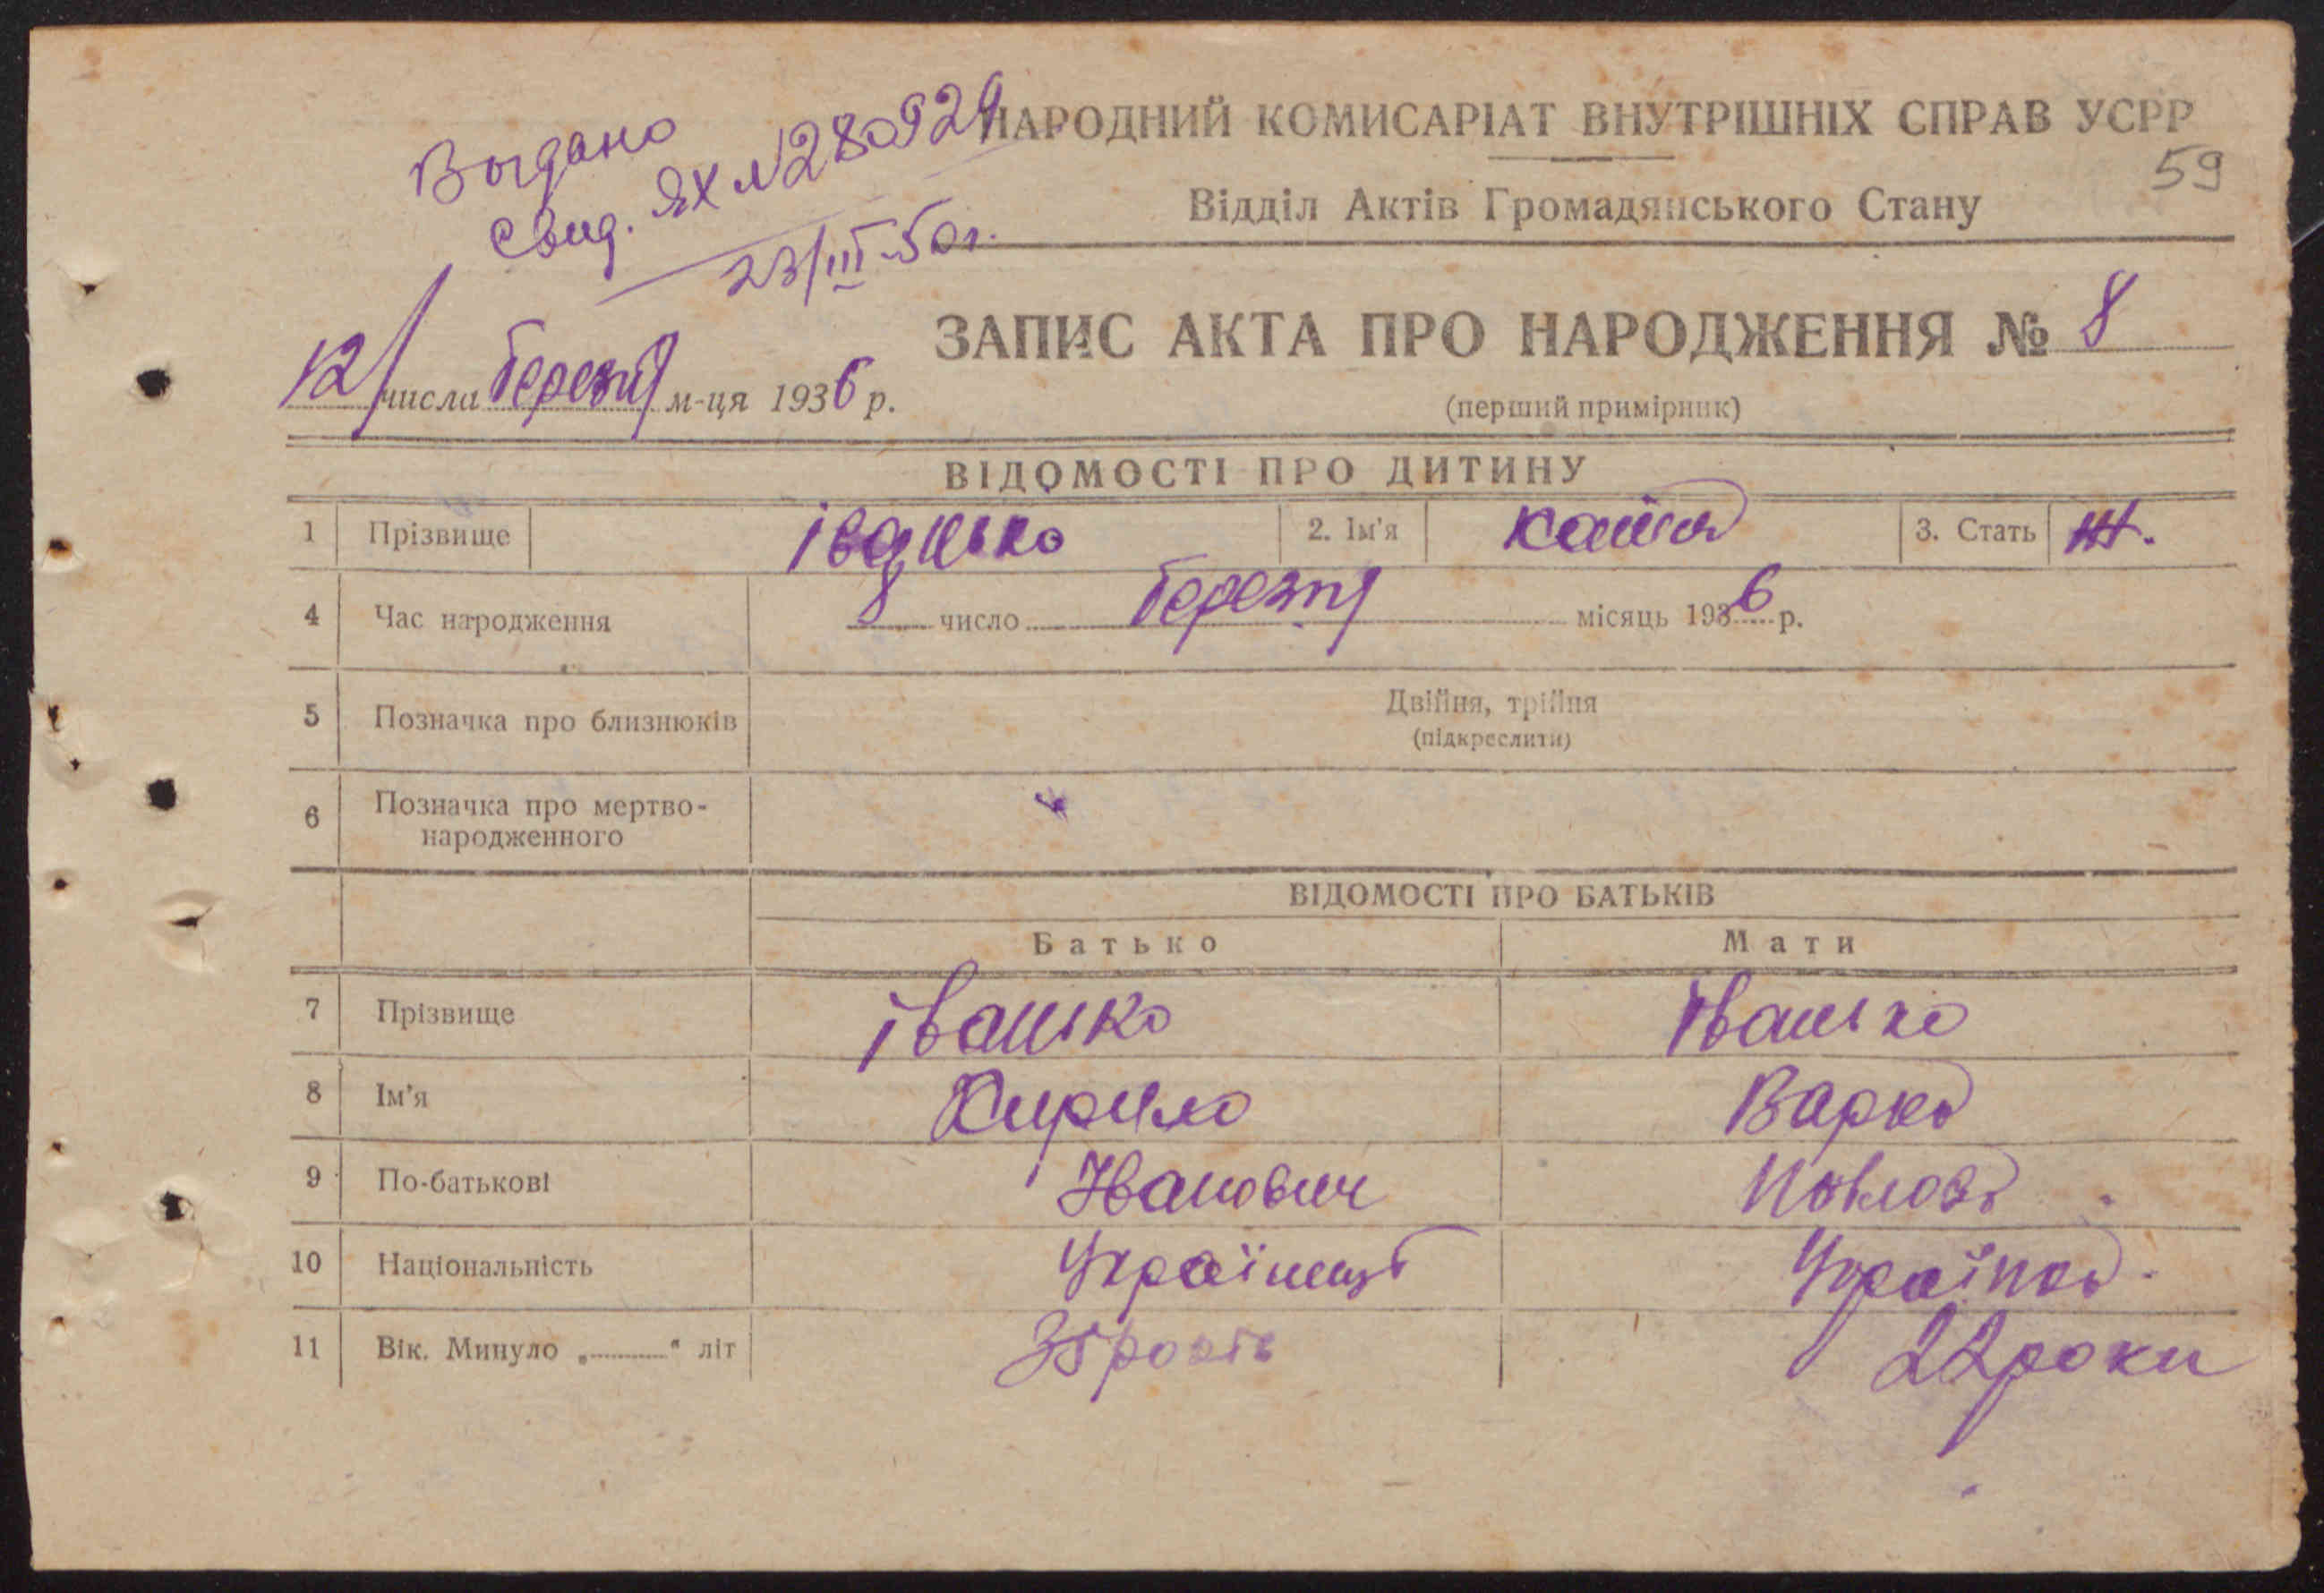 Выдано
свид. ЯХ №280929
23/III-50г.
НАРОДНИЙ КОМИСАРІАТ ВНУТРІШНІХ СПРАВ УСРР
59
Відділ Актів Громадянського Стану
ЗАПИС АКТА ПРО НАРОДЖЕННЯ № 8
12/ числа березня м-ця 1936 р.
(перший примірник)
ВІДОМОСТІ ПРО ДИТИНУ
1 Прізвище Іванько 2. Ім'я Катя 3. Стать Ж.
4 Час народження 8 число березня місяць 1936 р.
5 Позначка про близнюків Двійня, трійня
(підкреслити)
6 Позначка про мертво-
народженного
ВІДОМОСТІ ПРО БАТЬКІВ
Батько Мати
7 Прізвище Іванько Іванько
8 Ім'я Кирило Варка
9 По-батькові Иванович Павлова
10 Національність Українець Українка.
11 Вік. Минуло „ “ літ 22 роки